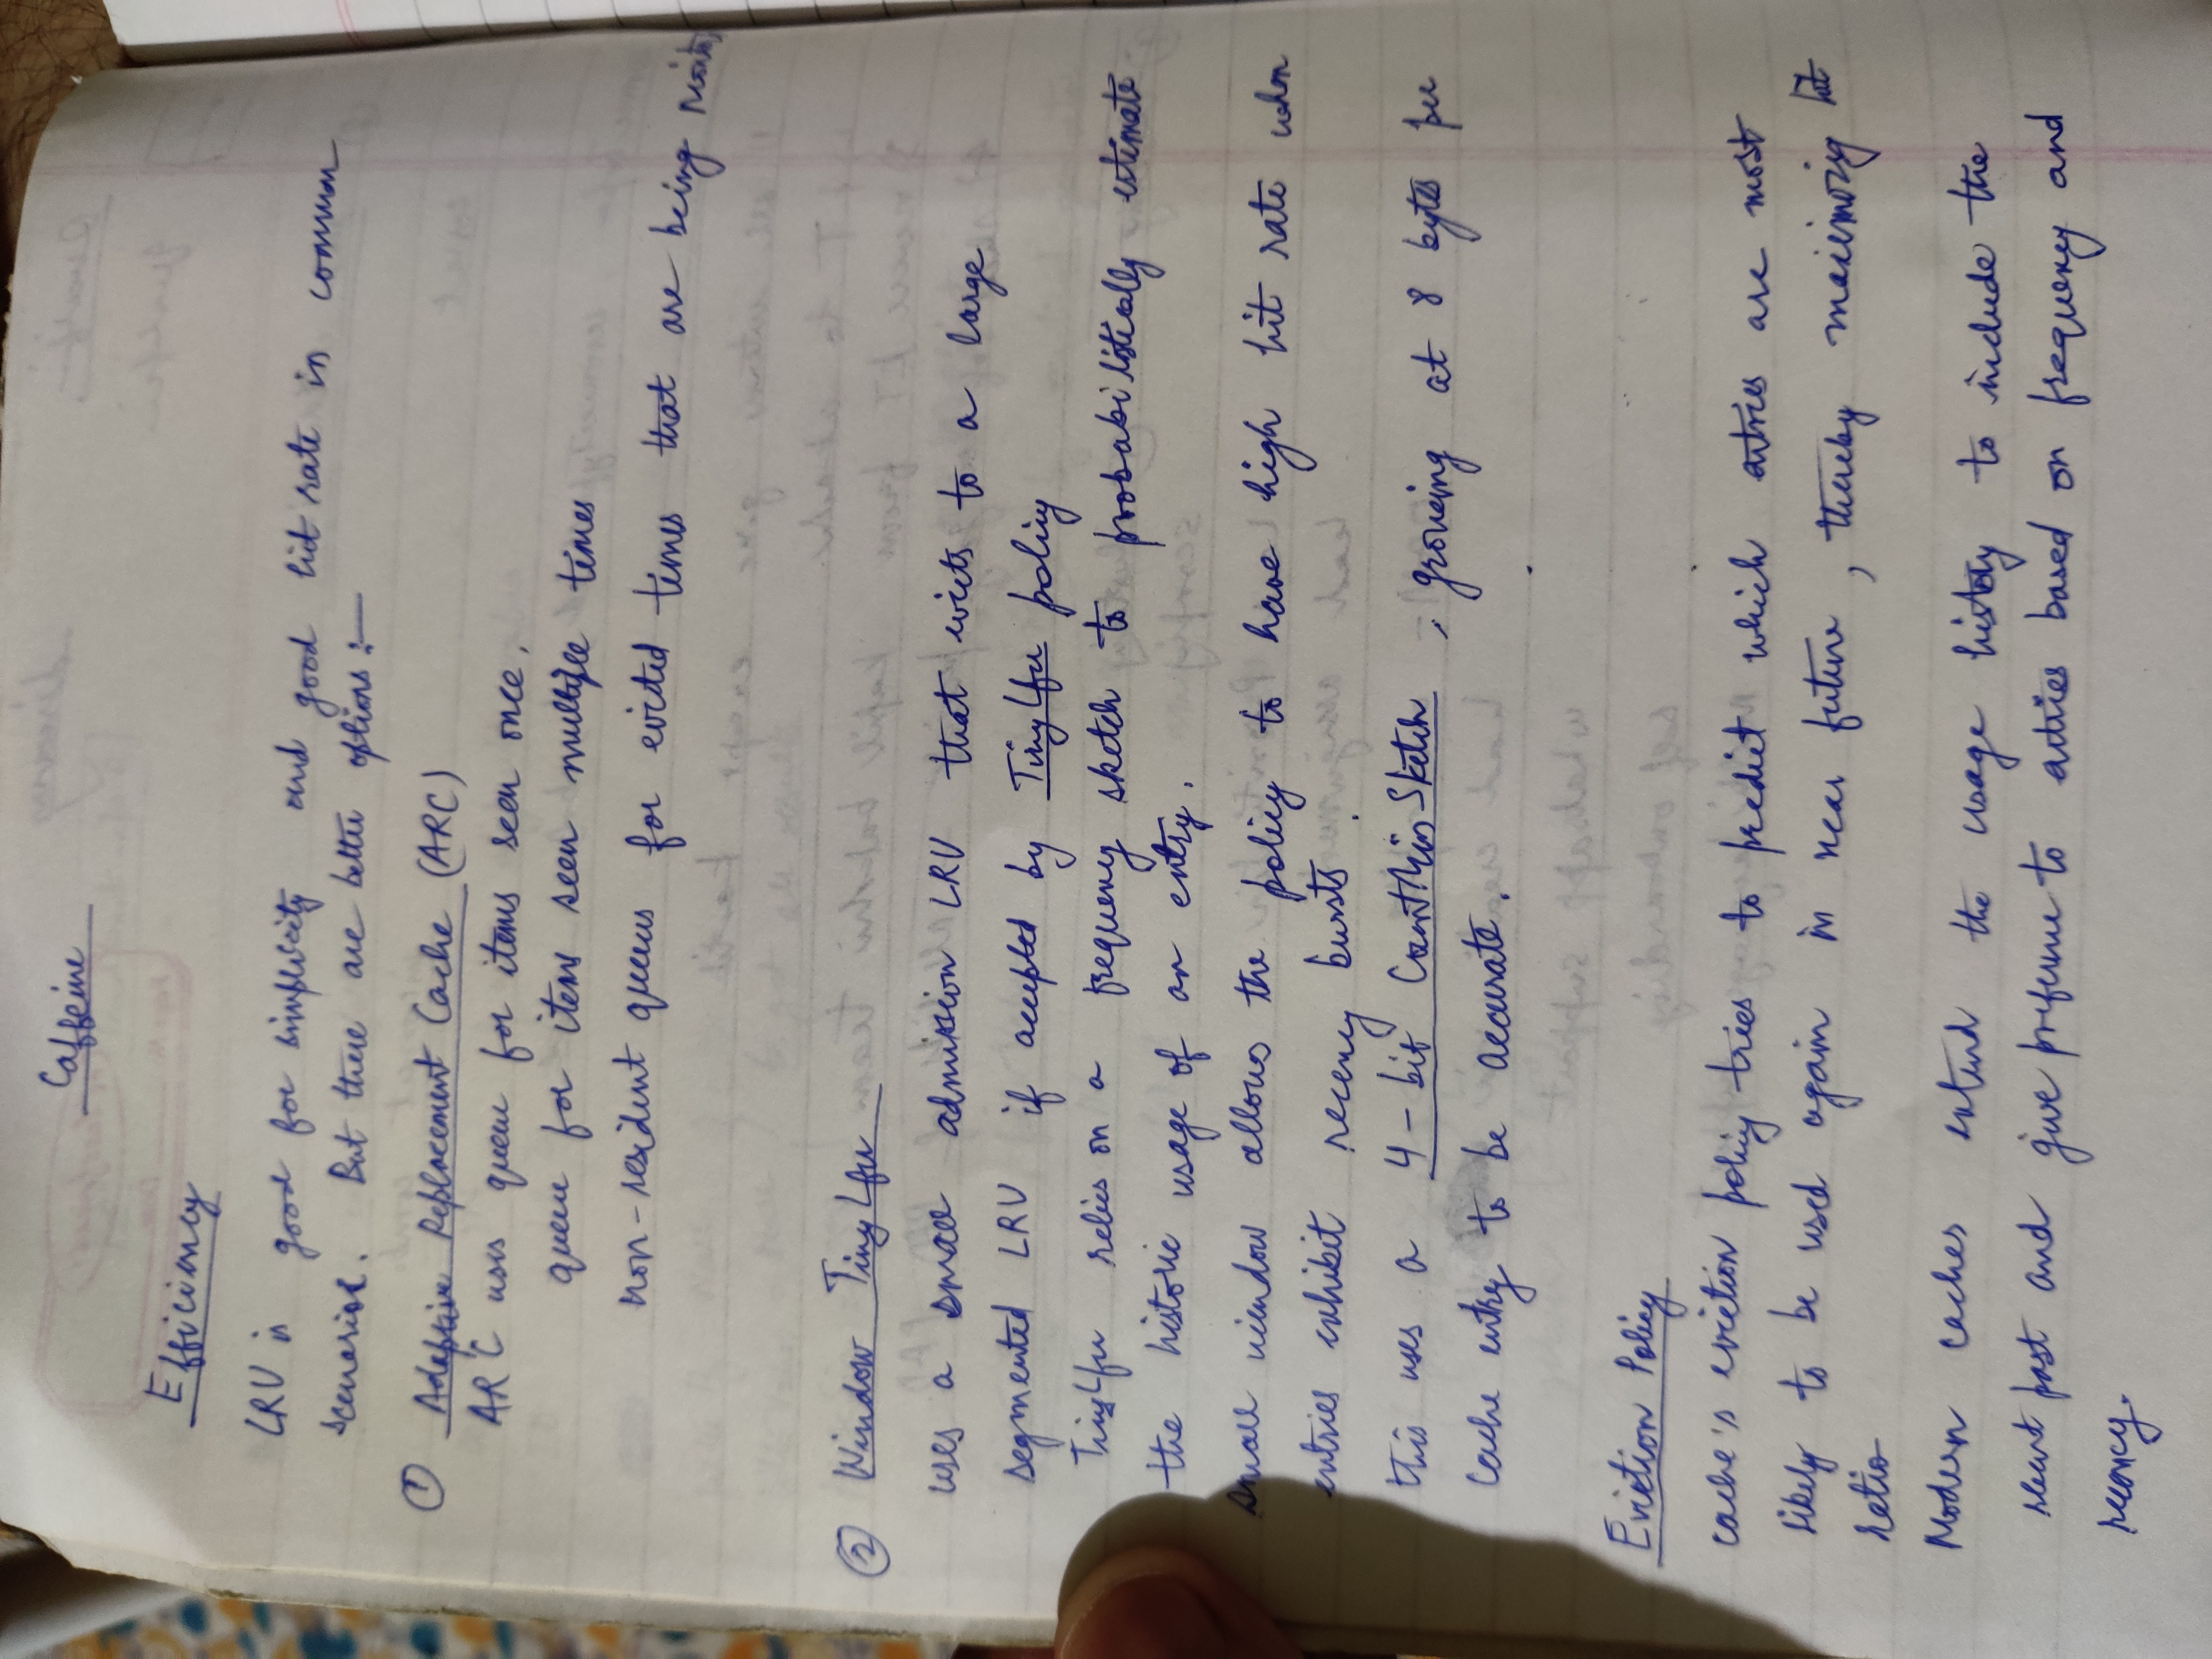 Caffeine
Efficiency
LRU is good for simplicity and good hit rate in common
scenarios. But there are better options :—
① Adaptive Replacement Cache (ARC)
ARC uses queue for items seen once,
queue for items seen multiple times
non-resident queues for evicted times that are being
② Window TinyLfu
uses a small admission LRU that evicts to a large
segmented LRU if accepted by TinyLfu policy
TinyLfu relies on a frequency sketch to probabilistically estimate
the historic usage of an entry.
small window allows the policy to have high hit rate when
entries exhibit recency bursts.
this uses a 4-bit CountMinSketch, growing at 8 bytes per
cache entry to be accurate.
Eviction Policy
cache's eviction policy tries to predict which entries are most
likely to be used again in near future, thereby hit
ratio
Modern caches extend the usage history to include the
recent past and give preference to entries based on frequency and
recency.